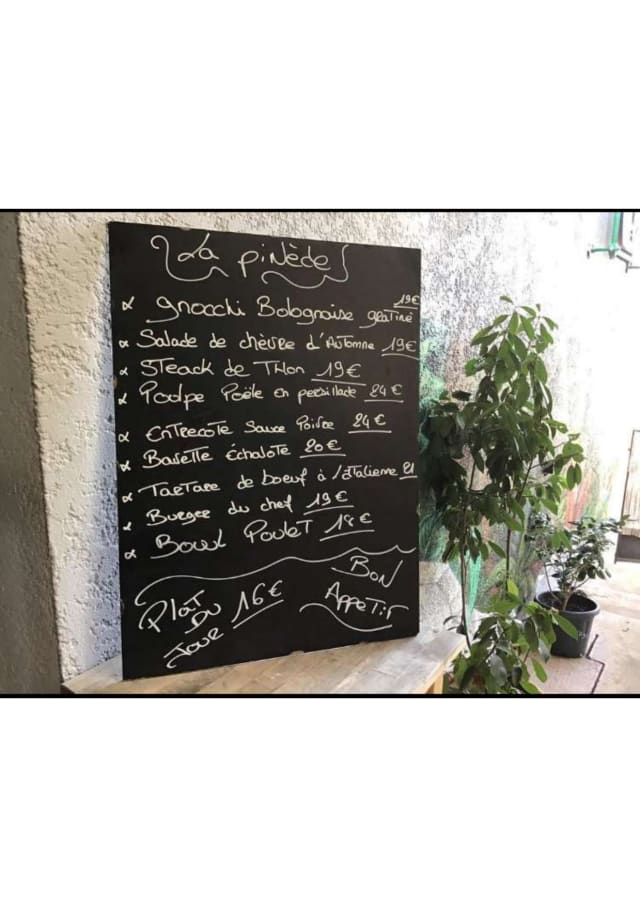 La pinède
gnocchi Bolognaise gratiné 19€
Salade de chèvre d'Automne 19€
STeack de Thon 19€
Poulpe Poële en persillade 24€
EnTrecôte Sauce Poivre 24€
Bavette Échalote 20€
TarTare de boeuf à l'iTalienne 21
Burger du chef 19€
Bowl PouleT
PlaT DU JOUR 16€
BON APPeTiT